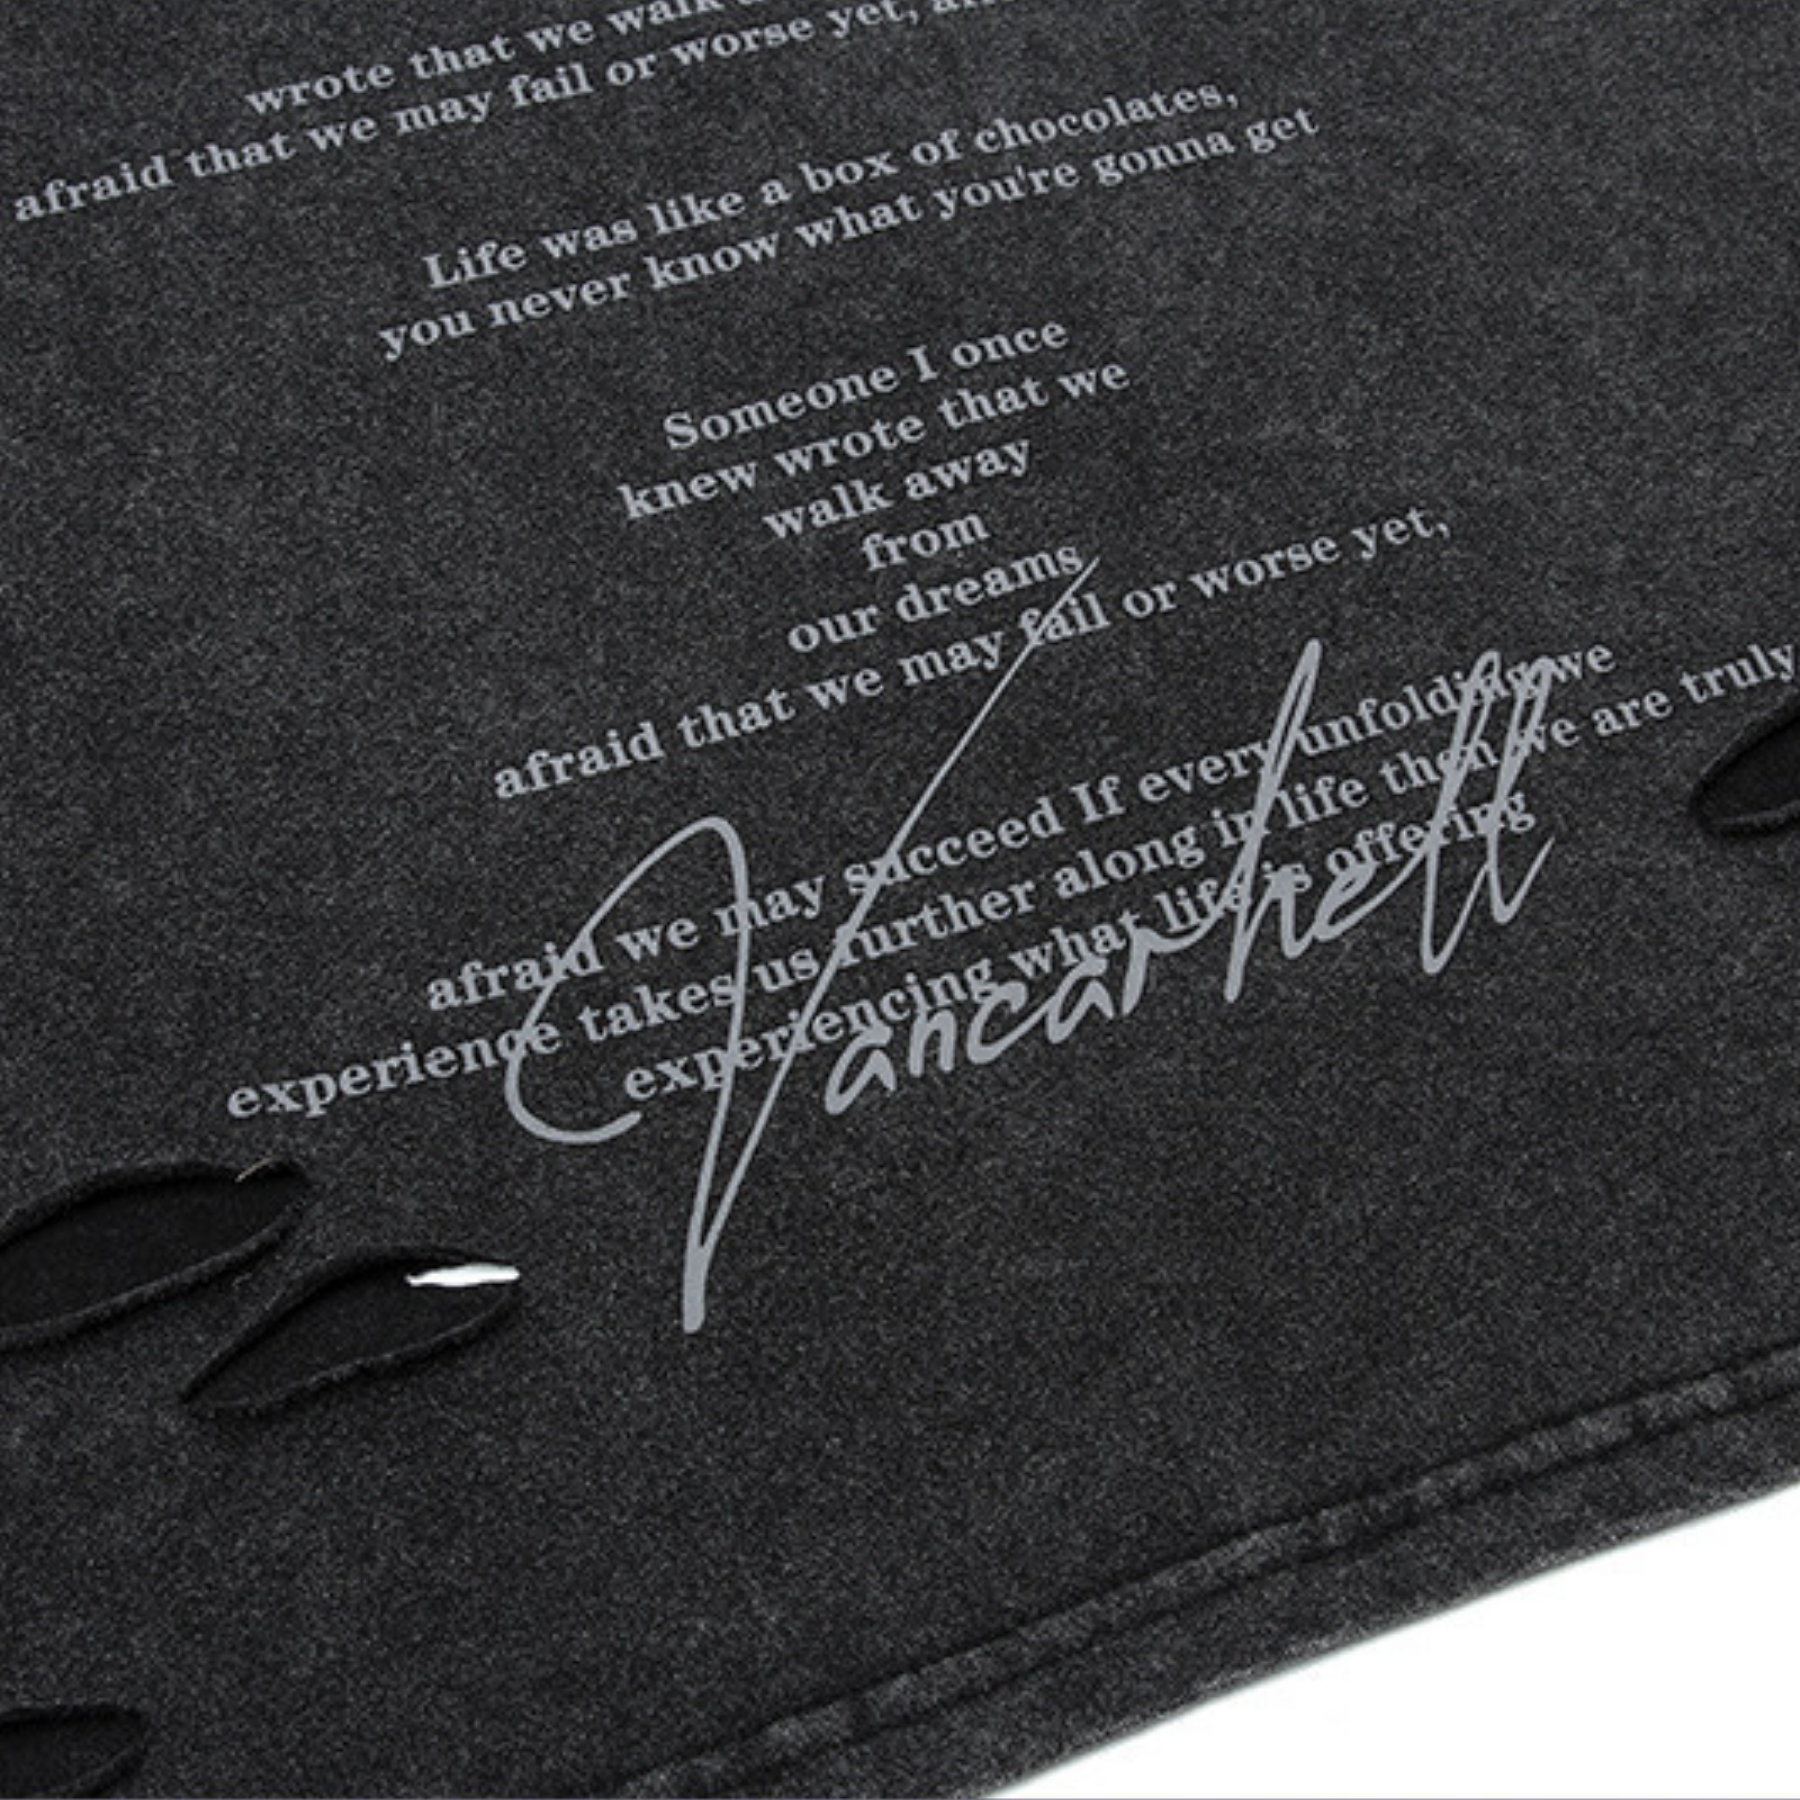 wrote that we walk
afraid that we may fail or worse yet,
Life was like a box of chocolates,
you never know what you're gonna get
Someone I once
knew wrote that we
walk away
from
our dreams
afraid that we may fail or worse yet,
afraid we may succeed If every unfolding we
experience takes us further along in life then we are truly
experiencing what life is offering
Vancarhell